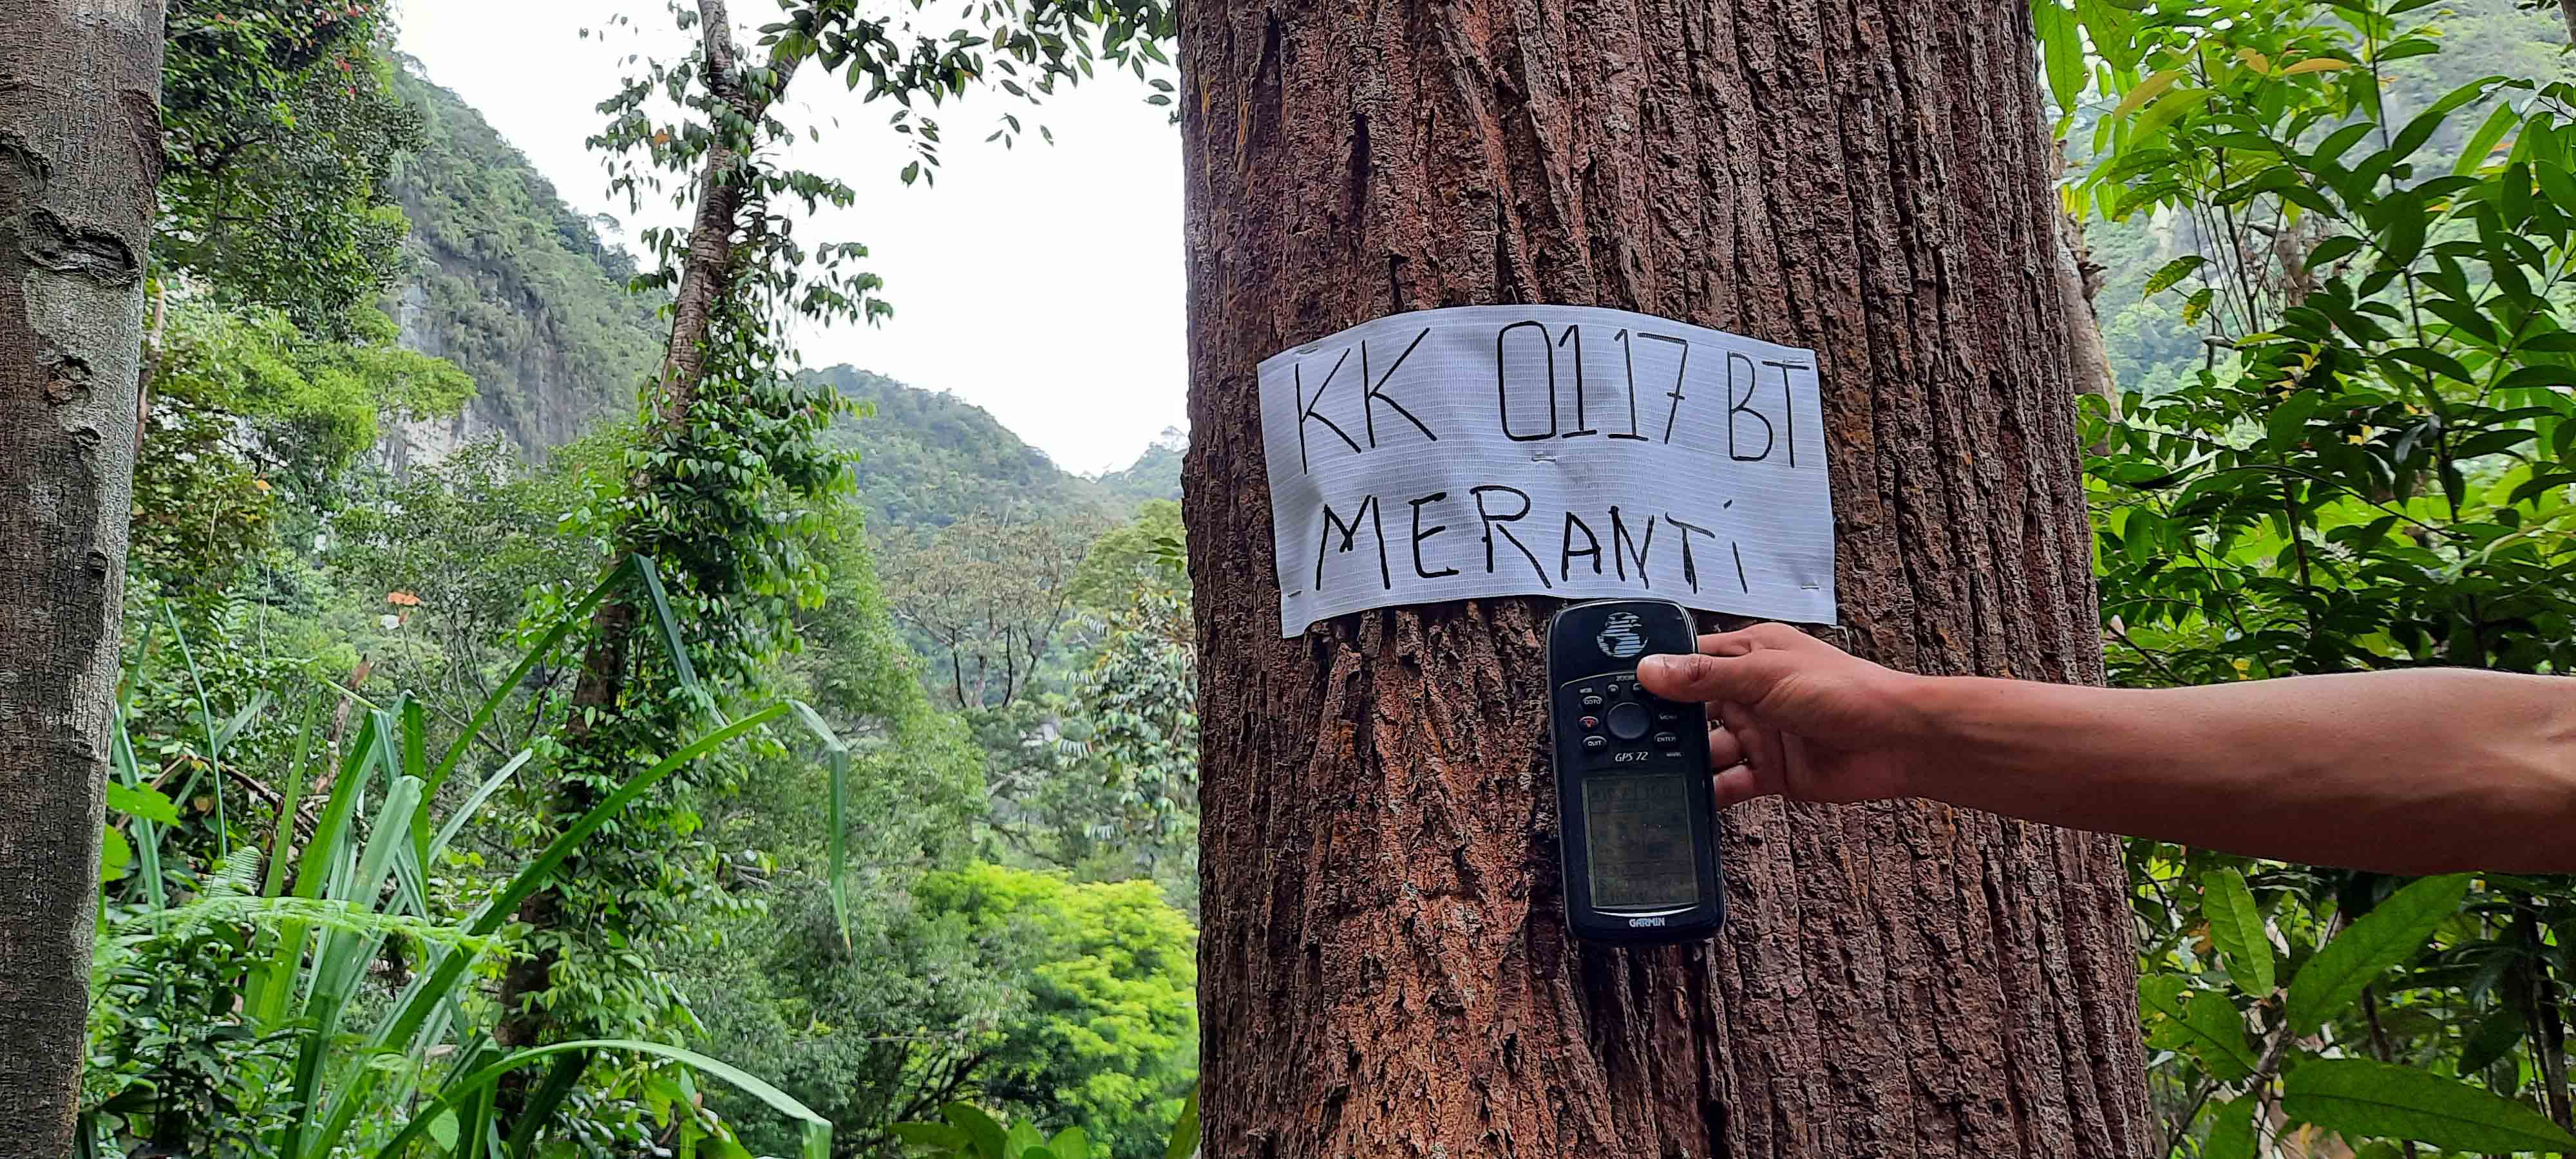 KK 0117 BT
MERANTi
ZOOM
GOTO
MENU
QUIT
ENTER
GPS 72
MARK
GARMIN